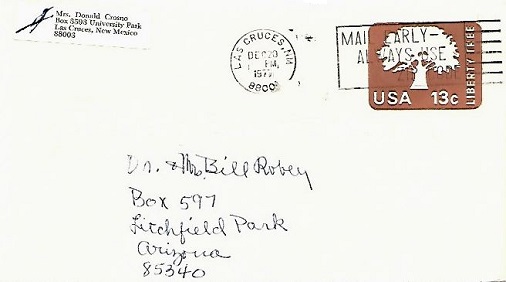 Mrs. Donald Crosno
Box 5593 University Park
Las Cruces, New Mexico
88003
LAS CRUCES, NM
DEC 20
PM
1977
MAIL EARLY-
ALWAYS USE
ZIP CODE
USA 13c
LIBERTY TREE
Dr. & Mrs. Bill Robey
Box 597
Litchfield Park
Arizona
85340